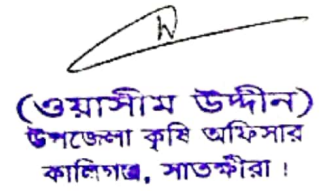 (ওয়াসীম উদ্দীন)
উপজেলা কৃষি অফিসার
কালিগঞ্জ, সাতক্ষীরা।